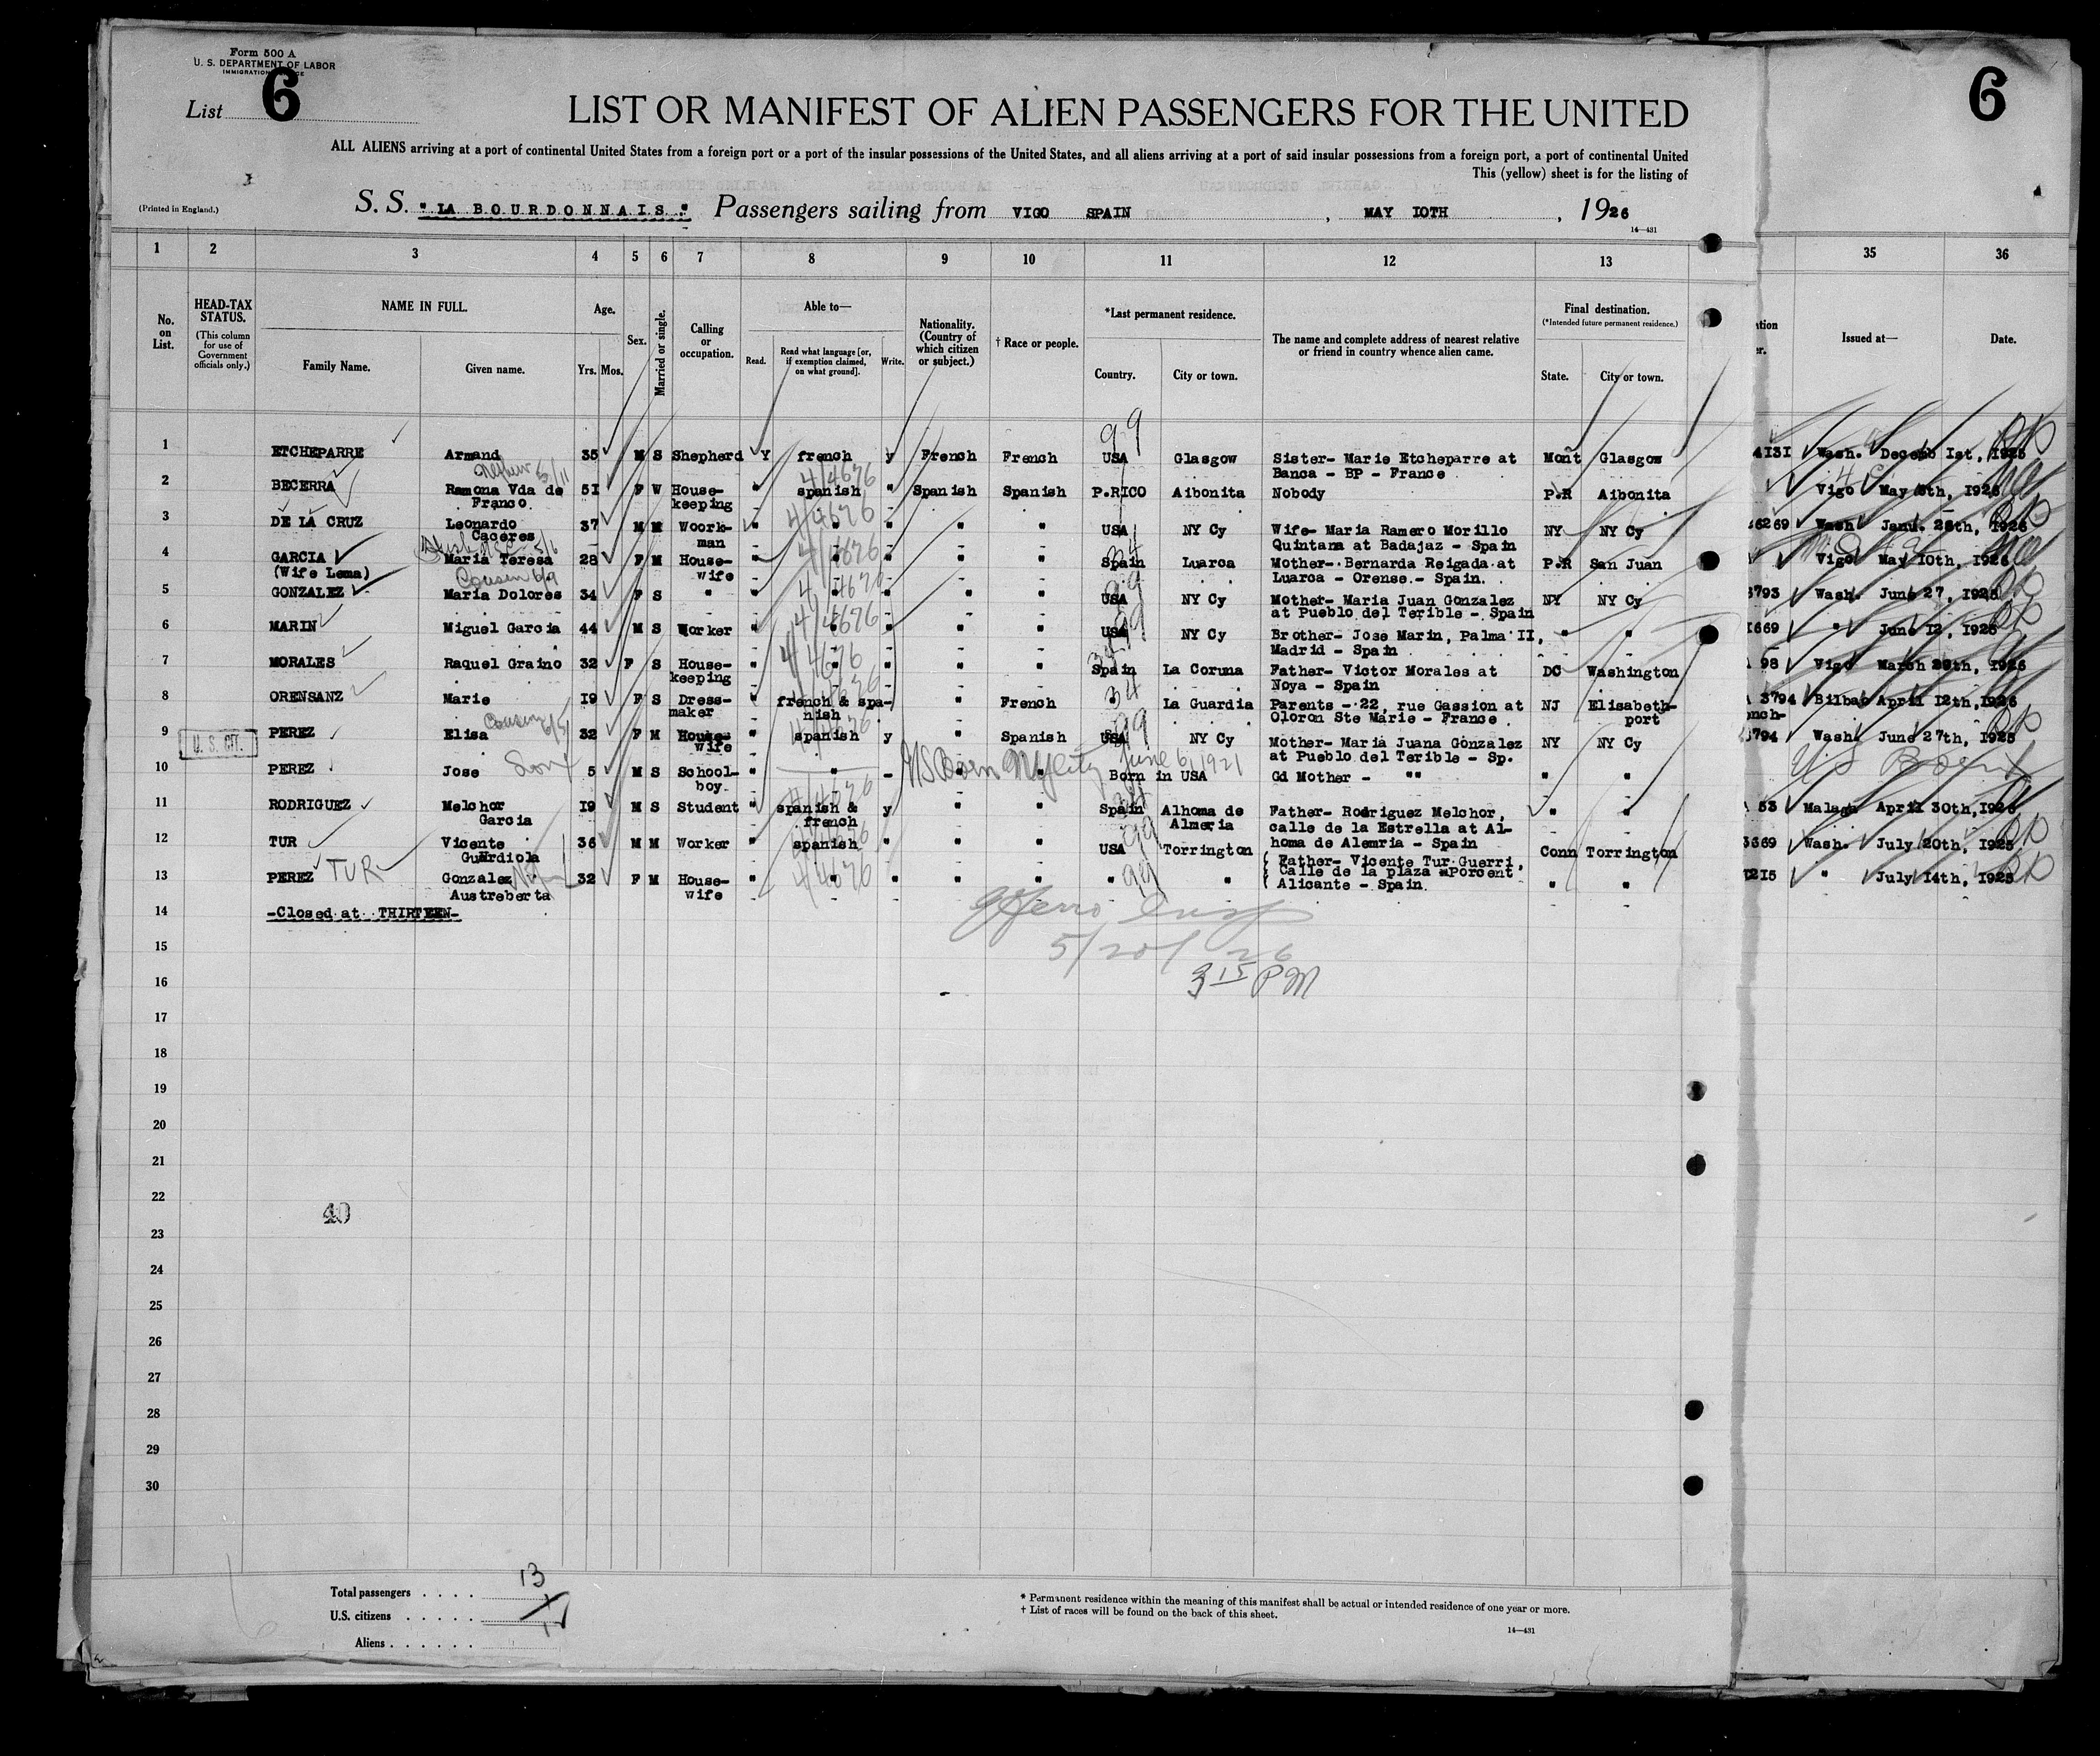 Form 500 A
U. S. DEPARTMENT OF LABOR
List 6
6
LIST OR MANIFEST OF ALIEN PASSENGERS FOR THE UNITED
ALL ALIENS arriving at a port of continental United States from a foreign port or a port of the insular possessions of the United States, and all aliens arriving at a port of said insular possessions from a foreign port, a port of continental United
This (yellow) sheet is for the listing of
(Printed in England.)
S. S. "LA BOURDONNAIS" Passengers sailing from VIGO SPAIN, MAY IOTH, 1926
14—431
1 2 3 4 5 6 7 8 9 10 11 12 13 35 36
No. on List.
HEAD-TAX STATUS. (This column for use of Government officials only.)
NAME IN FULL. Family Name. Given name.
Age. Yrs. Mos.
Sex.
Married or single.
Calling or occupation.
Able to— Read. Read what language [or, if exemption claimed, on what ground]. Write.
Nationality. (Country of which citizen or subject.)
† Race or people.
*Last permanent residence. Country. City or town.
The name and complete address of nearest relative or friend in country whence alien came.
Final destination. (*Intended future permanent residence.) State. City or town.
Issued at— Date.
1 ETCHEPARRE Armand 35 M S Shepherd Y french y French French USA Glasgow Sister- Marie Etcheparre at Mont Glasgow 4131 Wash. Ist, 1925
99
Banca - BP - France
2 BECERRA Ramona Vda de 51 F W House- " spanish " Spanish Spanish P.RICO Aibonita Nobody P.R Aibonita Vigo May 1926
Franco keeping
3 DE LA CRUZ Leonardo 37 M M Woork- " " " " " USA NY Cy Wife- Maria Ramero Morillo NY NY Cy 26269 Wash Janu. 1926
Caceres man Quintana at Badajaz - Spain
4 GARCIA Maria Teresa 28 F M House- " " " " " Spain Luarca Mother- Bernarda Reigada at P.R San Juan Vigo May 10th, 1926
(Wife Lema) wife Luarca - Orense - Spain.
Cousin 6/9
5 GONZALEZ Maria Dolores 34 F S " " " " " " USA NY Cy Mother- Maria Juan Gonzalez NY NY Cy 3793 Wash. June 27, 1925
at Pueblo del Terible - Spain
6 MARIN Miguel Garcia 44 M S Worker " " " " " USA NY Cy Brother- Jose Marin, Palma II, " " 1669 " June 12, 1925
Madrid - Spain
7 MORALES Raquel Graino 32 F S House- " " " " " Spain La Coruna Father- Victor Morales at DC Washington 98 Vigo March 1926
keeping Noya - Spain
8 ORENSANZ Marie 19 F S Dress- " french & spa- " " French " La Guardia Parents - 22, rue Gassion at NJ Elisabeth- 3794 Bilbao April 12th, 1926
34
maker nish Oloron Ste Marie - France port
Cousin 6/5
9 PEREZ Elisa 32 F M House- " spanish y " Spanish USA NY Cy Mother- Maria Juana Gonzalez NY NY Cy 3794 Wash. June 27th, 1925
wife at Pueblo del Terible - Sp.
U. S. CIT.
10 PEREZ Jose Son 5 M S School- " " - " " Born in USA Gd Mother - "" " "
boy US Born NY City June 6, 1921 US Born
11 RODRIGUEZ Melchor 19 M S Student " spanish & y " " Spain Alhoma de Father- Rodriguez Melchor, " " 53 Malaga April 30th, 1926
Garcia french Almeria calle de la Estrella at Al-
homa de Alemria - Spain
12 TUR Vicente 36 M M Worker " spanish " " " USA Torrington Conn Torrington 3669 Wash. July 20th, 1925
Guardiola Father- Vicente Tur Guerri,
13 PEREZ TUR Gonzalez 32 F M House- " " " " " " " Calle de la plaza Porcent " " 1215 " July 14th, 1925
Austreberta wife Alicante - Spain
14 -Closed at THIRTEEN-
5/20/26
3 15 PM
15
16
17
18
19
20
21
22
40
23
24
25
26
27
28
29
30
Total passengers . . . . 13
U.S. citizens . . . . .
Aliens . . . . . .
* Permanent residence within the meaning of this manifest shall be actual or intended residence of one year or more.
† List of races will be found on the back of this sheet.
14—431